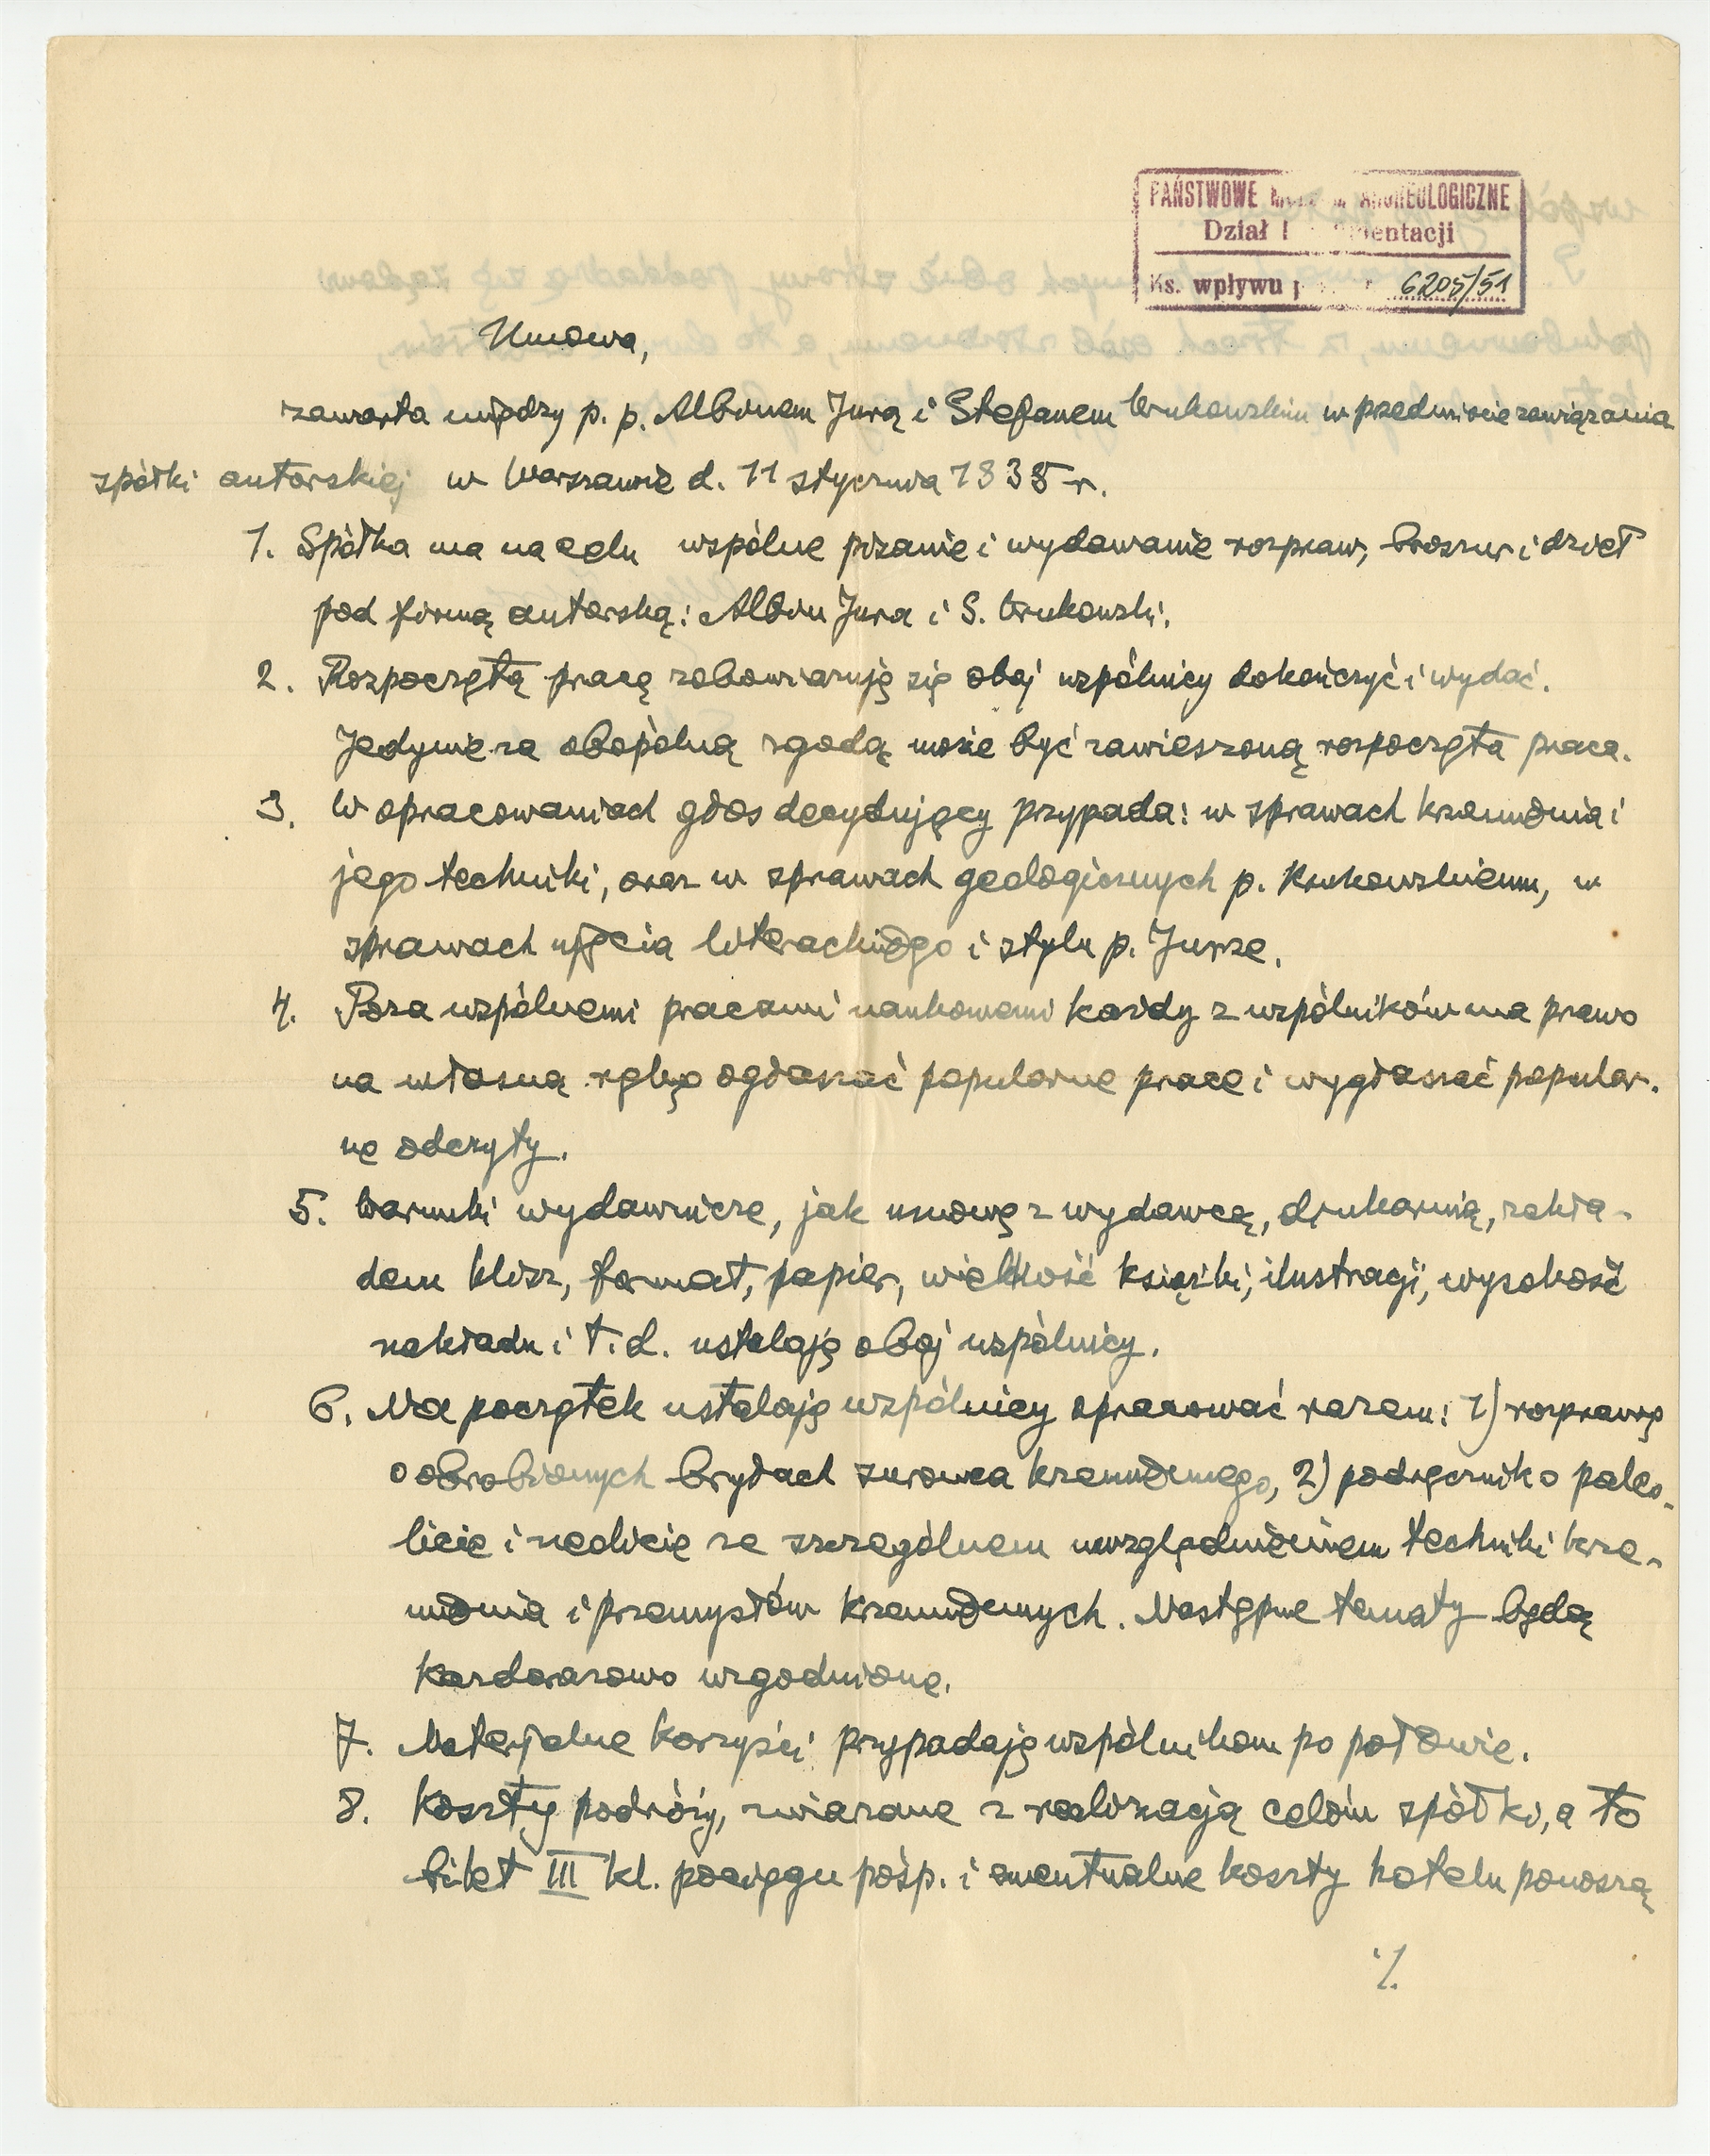 PAŃSTWOWE MUZEUM ARCHEOLOGICZNE
Dział Dokumentacji
Ks. wpływu 6205/51
Umowa,
zawarta między p. p. Albinem Jurą i Stefanem Krukowskim w przedmiocie zawiązania
spółki autorskiej w Warszawie d. 11 stycznia 1938 r.
1. Spółka ma na celu wspólne pisanie i wydawanie rozpraw, broszur i dzieł
pod firmą autorską: Albin Jura i S. Krukowski.
2. Rozpoczętą pracę zobowiązują się obaj wspólnicy dokończyć i wydać.
Jedynie za obopólną zgodą może być zawieszoną rozpoczęta praca.
3. W opracowaniach głos decydujący przypada: w sprawach krzemienia i
jego techniki, oraz w sprawach geologicznych p. Krukowskiemu, w
sprawach ujęcia literackiego i stylu p. Jurze.
4. Poza wspólnemi pracami naukowemi każdy z wspólników ma prawo
na własną rękę ogłaszać popularne prace i wygłaszać popular-
ne odczyty.
5. Warunki wydawnicze, jak umowę z wydawcą, drukarnią, zakła-
dem klisz, format, papier, wielkość książki, ilustracji, wysokość
nakładu i t. d. ustalają obaj wspólnicy.
6. Na początek ustalają wspólnicy opracować razem: 1) rozprawę
o obrobionych bryłach surowca krzemiennego, 2) podręcznik o paleo-
licie i neolicie ze szczególnem uwzględnieniem techniki krze-
mienia i przemysłów krzemiennych. Następne tematy będą
każdorazowo uzgodnione.
7. Materjalne korzyści przypadają wspólnikom po połowie.
8. Koszty podróży, związane z realizacją celów spółki, a to
bilet III kl. pociągu pośp. i ewentualne koszty hotelu ponoszą
./.